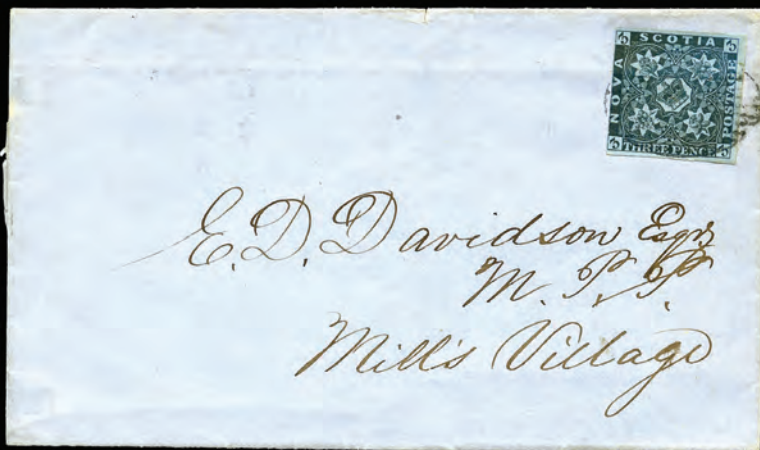 NOVA SCOTIA POSTAGE
THREE PENCE
E. D. Davidson Esqr
M. P. P.
Mill's Village